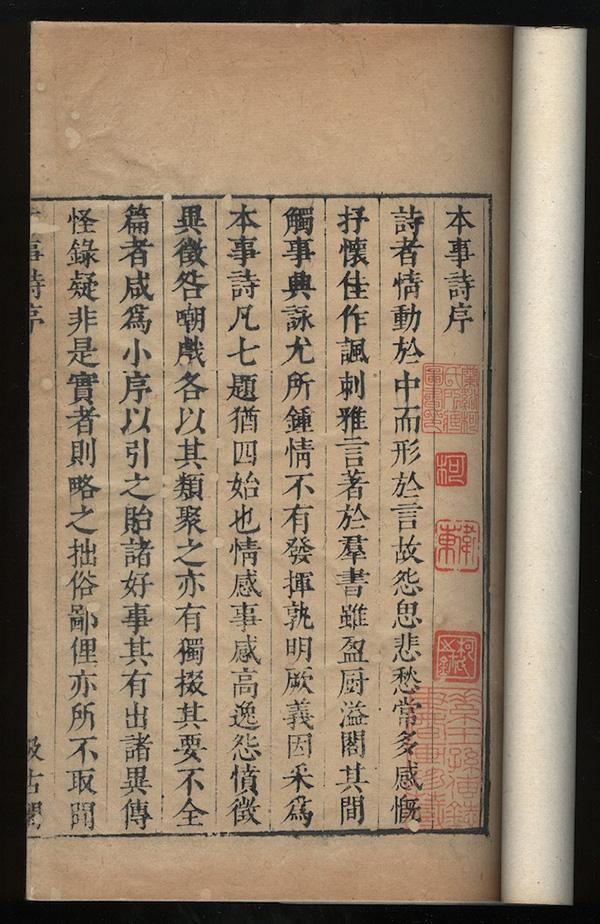 本事詩序
詩者情動於中而形於言故怨思悲愁常多感慨
抒懷佳作諷刺雅言著於羣書雖盈厨溢閣其間
觸事興詠尤所鍾情不有發揮孰明厥義因采爲
本事詩凡七題猶四始也情感事感高逸怨憤徵
異徵咎嘲戲各以其類聚之亦有獨掇其要不全
篇者咸爲小序以引之貽諸好事其有出諸異傳
怪錄疑非是實者則略之拙俗鄙俚亦所不取聞
事詩序
汲古閣
柯